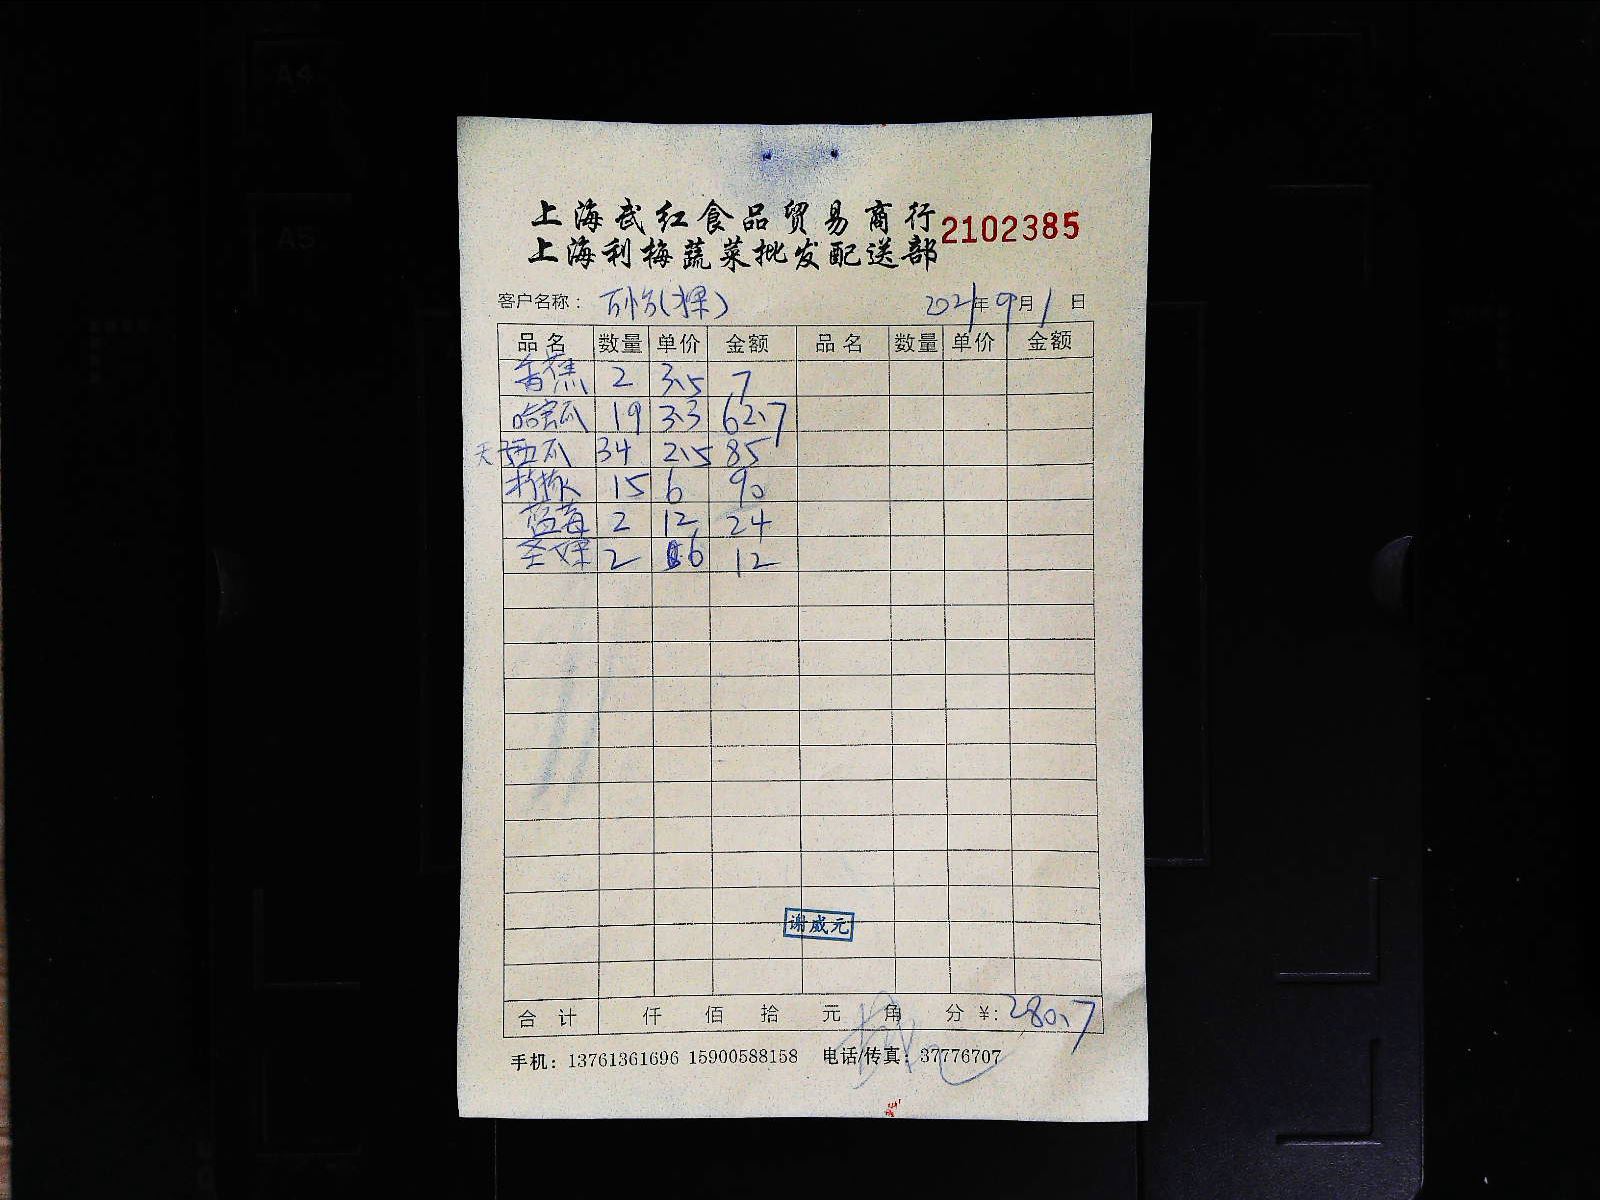 上海武红食品贸易商行
2102385
上海利梅蔬菜批发配送部
客户名称： 百怡(水果) 2021年9月1日
品名 数量 单价 金额 品名 数量 单价 金额
香蕉 2 3.5 7
哈密瓜 19 3.3 62.7
西瓜 34 2.5 85
15 6 90
蓝莓 2 12 24
圣女果 2 6 12
谢威元
合计 仟 佰 拾 元 角 分 ¥: 280.7
手机：13761361696 15900588158 电话/传真：37776707